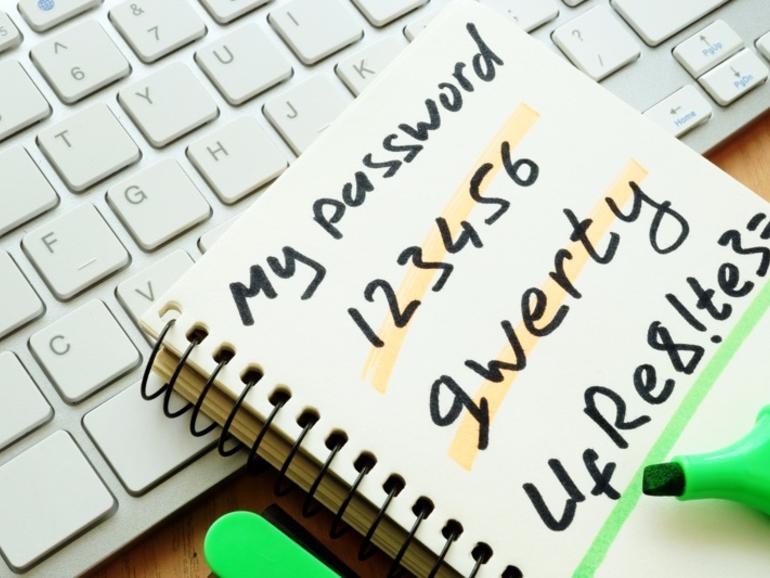 &
7
I
?
/
PgUp
^
6
U
K
PgDn
Y
J
Home
T
H
G
F
V
C
My password
123456
qwerty
UfRe8!te3=